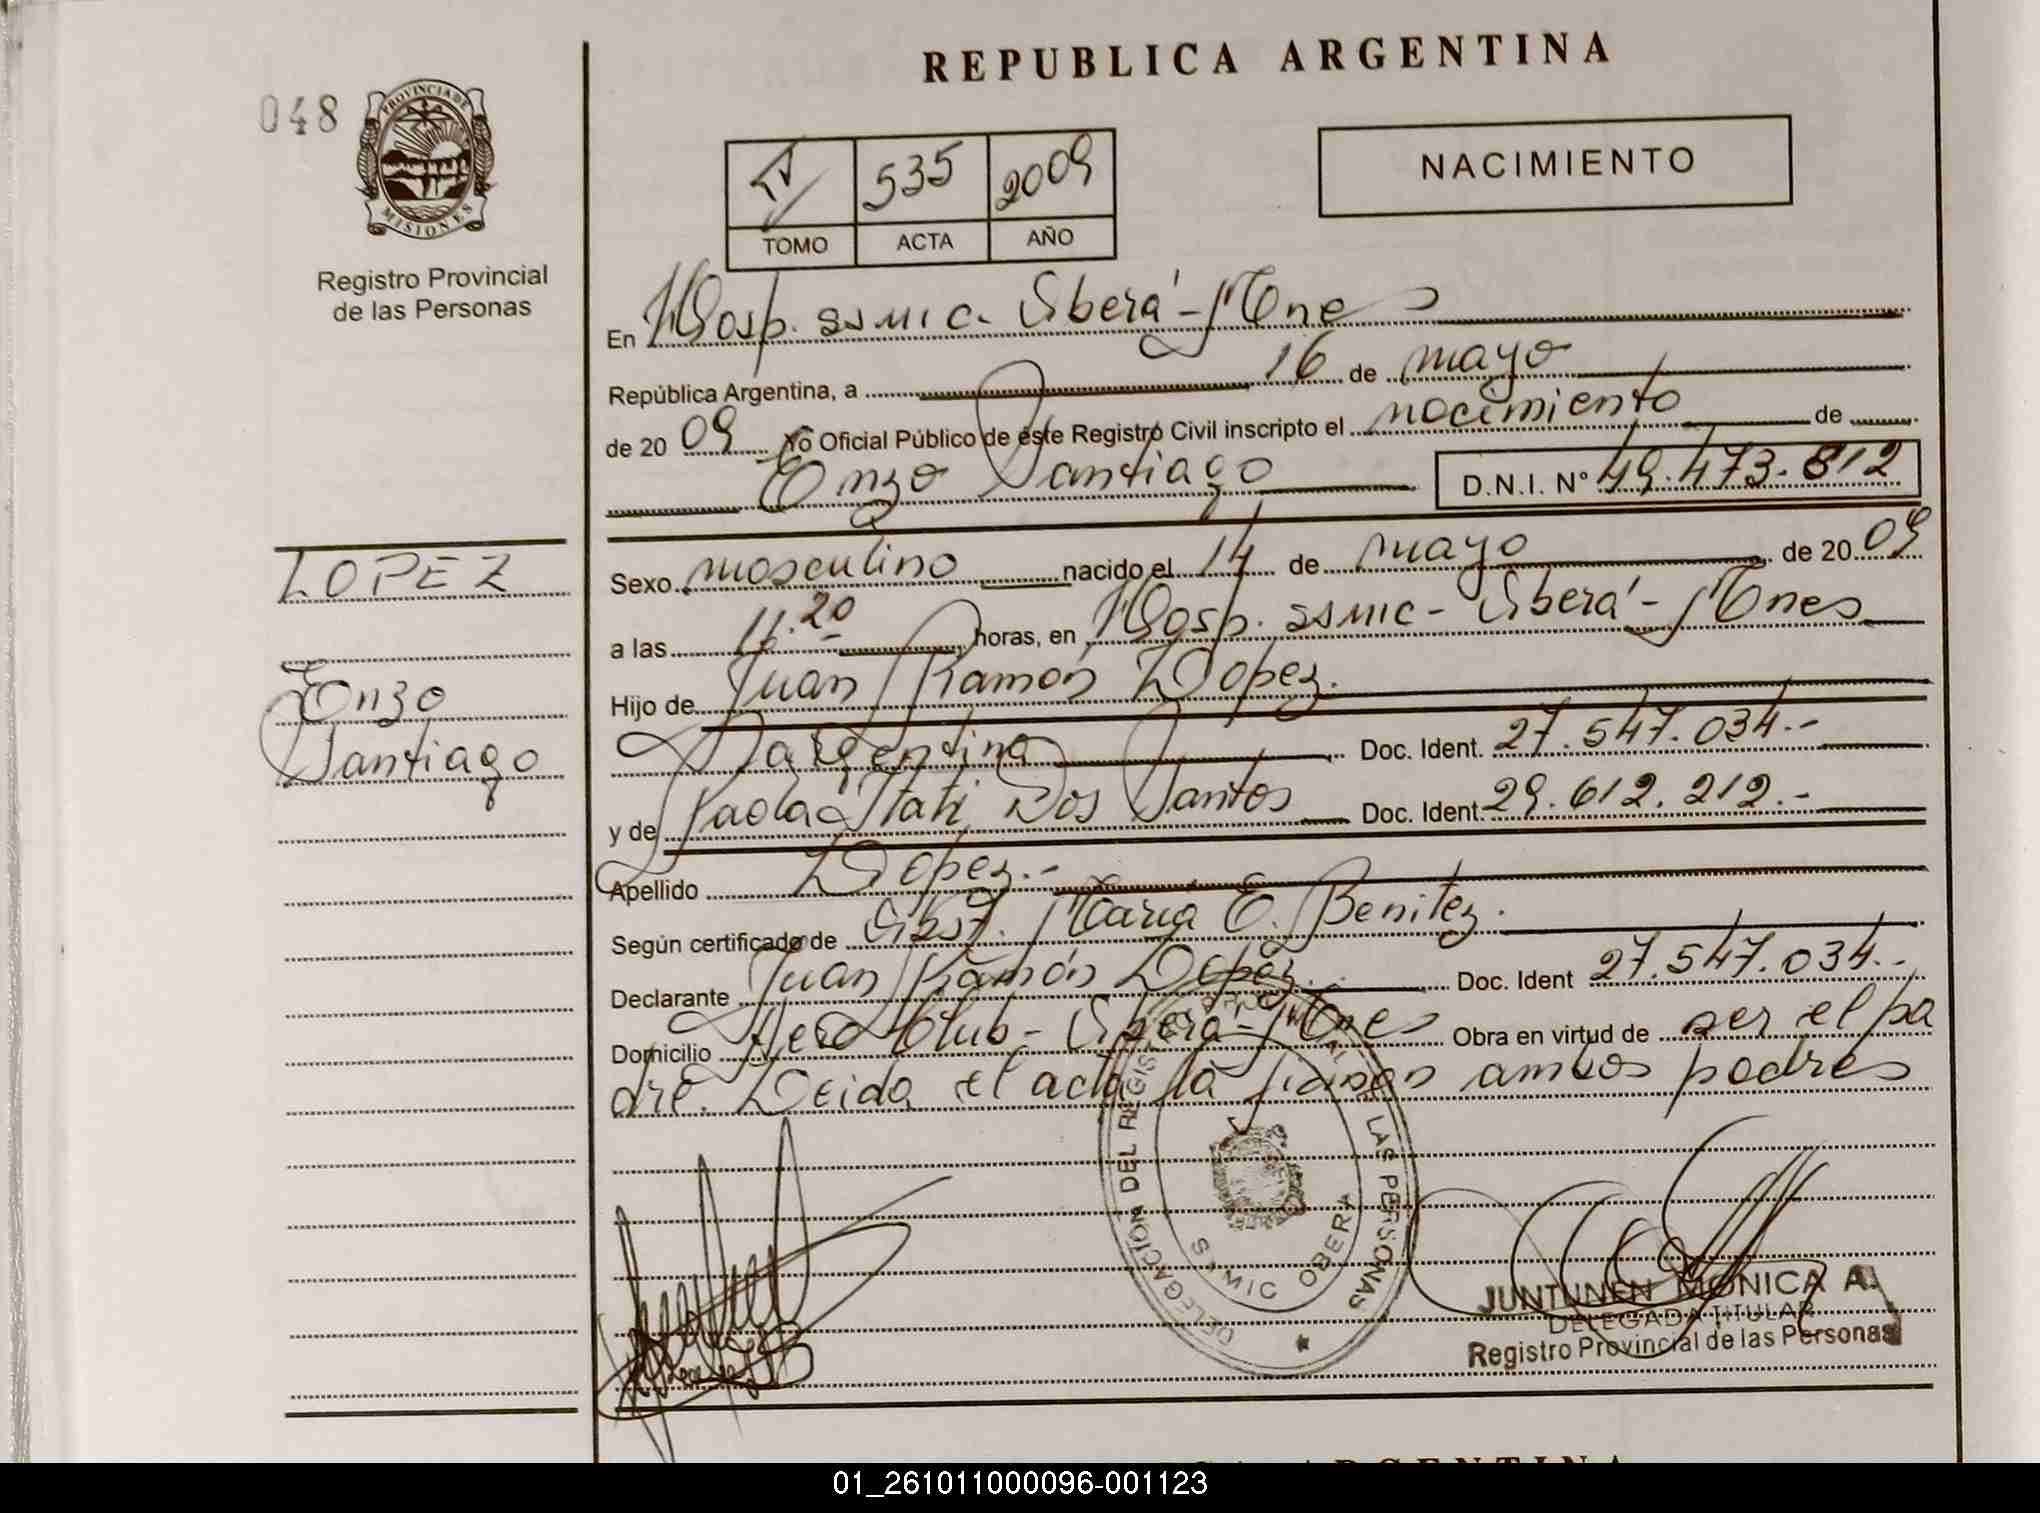 REPUBLICA ARGENTINA
048
PROVINCIA DE
MISIONES
Registro Provincial
de las Personas
535 2009
TOMO ACTA AÑO
NACIMIENTO
En Hosp. ssmic. Oberá - Mnes
República Argentina, a 16 de mayo
de 20 09 Yo Oficial Público de este Registro Civil inscripto el nacimiento de
Enzo Santiago D.N.I. N° 49.473.812
LOPEZ
Enzo
Santiago
Sexo masculino nacido el 14 de mayo de 20 09
a las 11.20 horas, en Hosp. ssmic - Oberá - Mnes
Hijo de Juan Ramón Lopez.
argentina Doc. Ident. 27.547.034.-
y de Paola Itati Dos Santos Doc. Ident. 29.612.212.-
Apellido Lopez.-
Según certificado de Obst. Maria E. Benitez.
Declarante Juan Ramón Lopez. Doc. Ident 27.547.034.-
Domicilio Aero Club - Oberá - Mnes Obra en virtud de ser el pa
dre. Leida el acta la firman ambos padres
DELEGACION DEL REGISTRO PROVINCIAL DE LAS PERSONAS
SAMIC OBERA
JUNTUNEN MONICA A.
DELEGADA TITULAR
Registro Provincial de las Personas
ARGENTINA
01_261011000096-001123